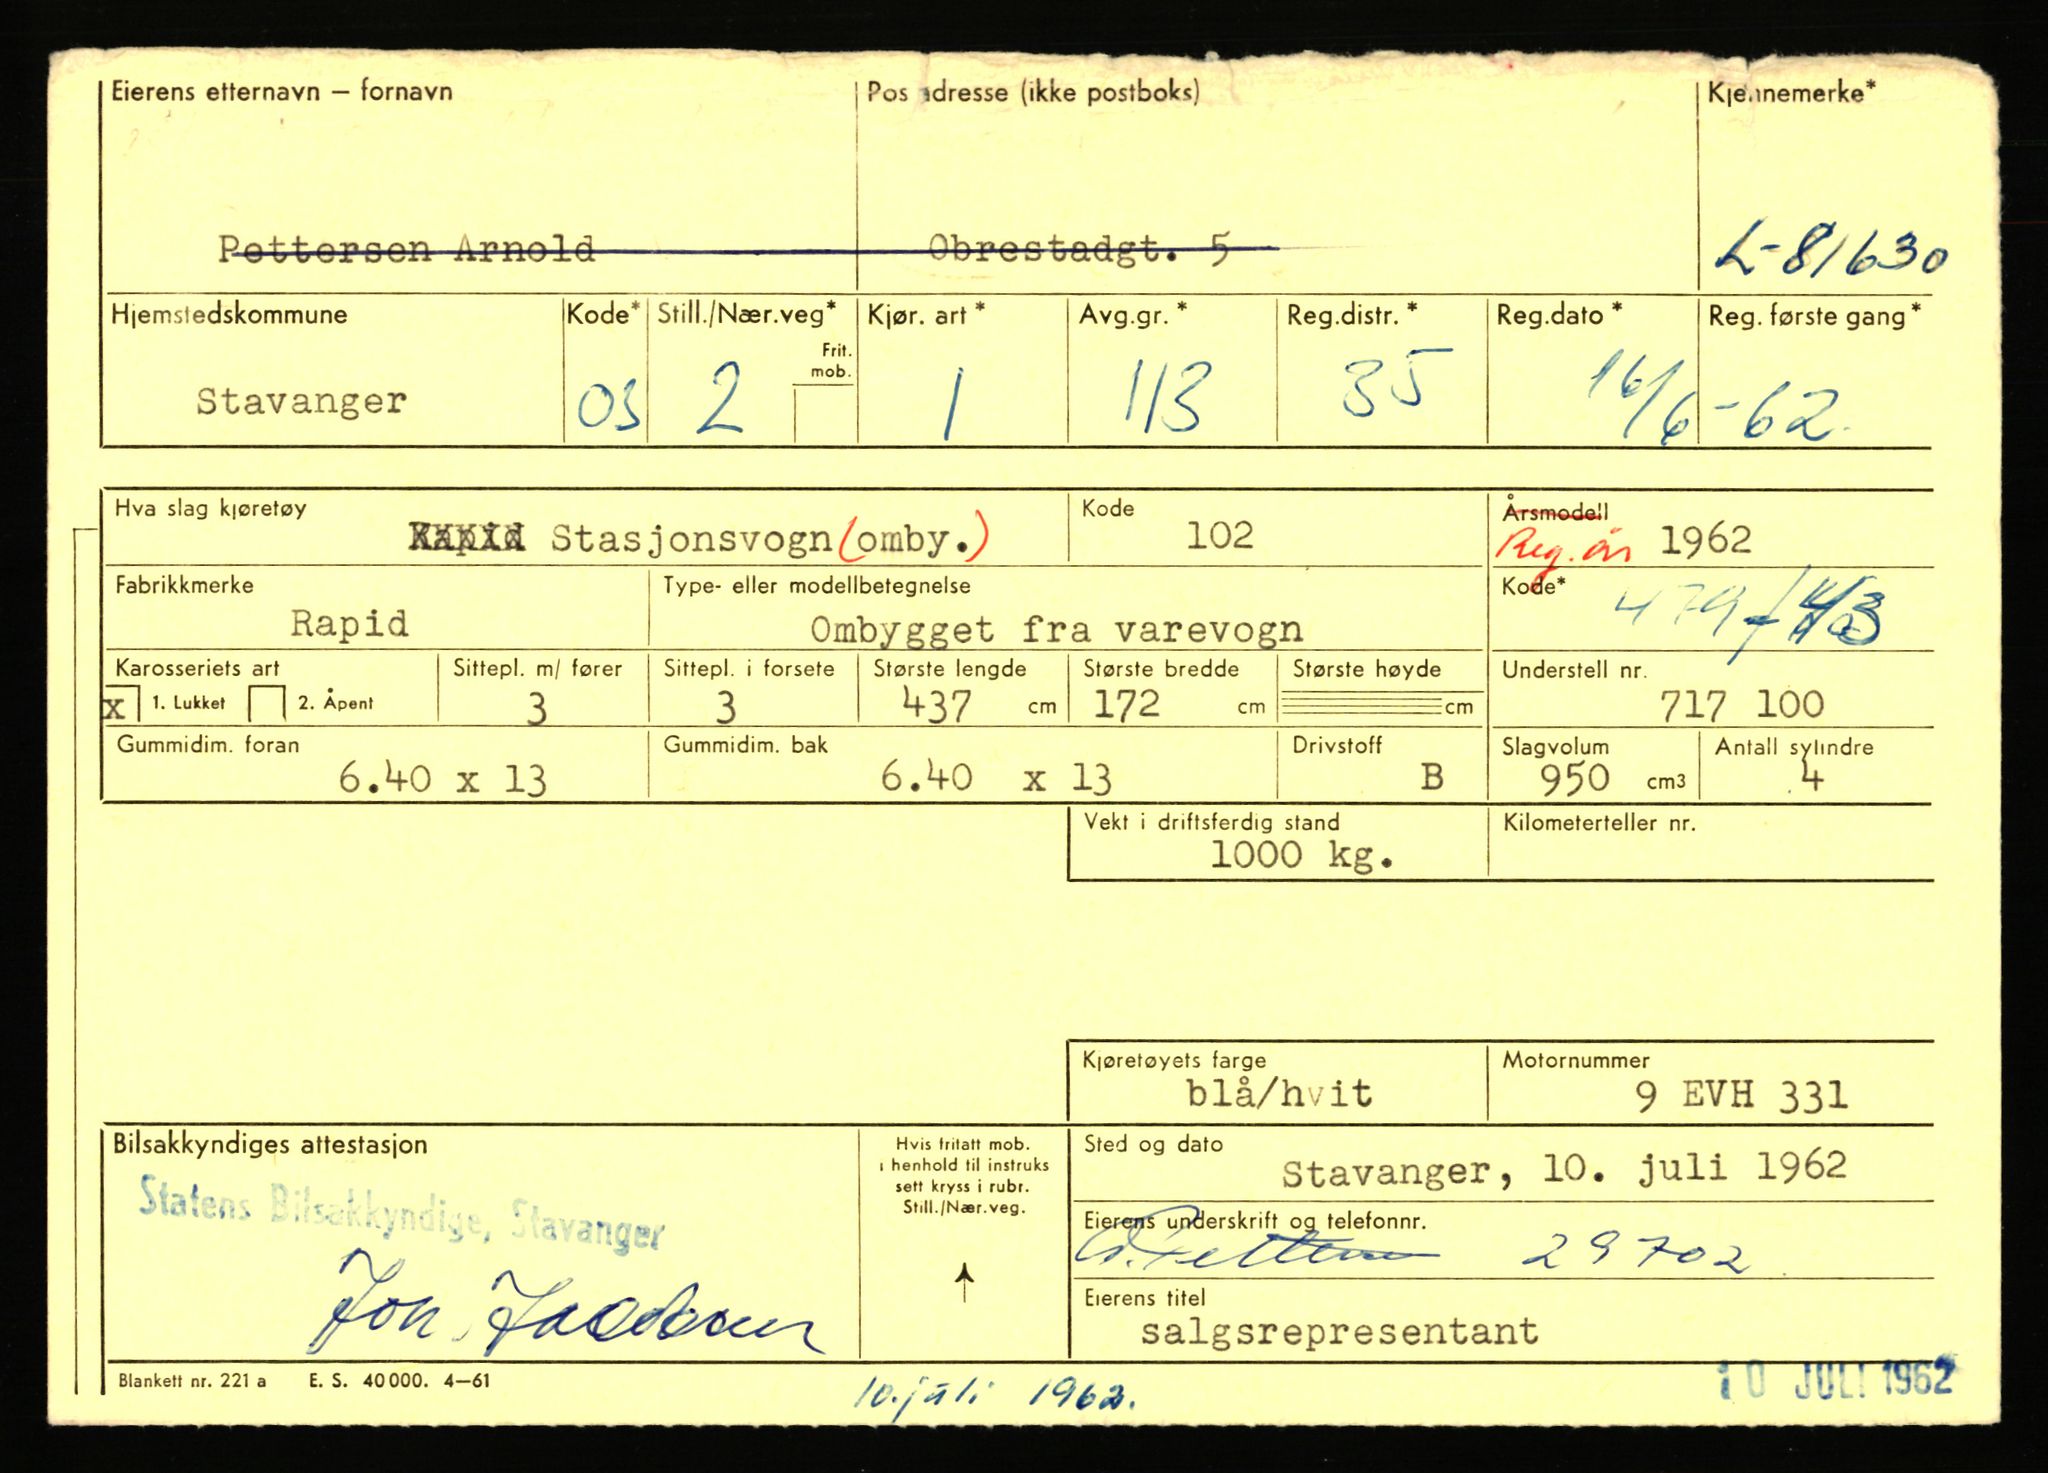 Eierens etternavn – fornavn Pos adresse (ikke postboks) Kjennemerke*
Pettersen Arnold Obrestadgt. 5 L-81630
Hjemstedskommune Kode* Still./Nær.veg* Kjør. art* Avg.gr.* Reg.distr.* Reg.dato* Reg. første gang*
Frit.
mob.
Stavanger 03 2 1 113 35 16/6-62.
Hva slag kjøretøy Kode Årsmodell
Rapid Stasjonsvogn (omby.) 102 Reg. år 1962
Fabrikkmerke Type- eller modellbetegnelse Kode*
Rapid Ombygget fra varevogn 479
Karosseriets art Sittepl. m/ fører Sittepl. i forsete Største lengde Største bredde Største høyde Understell nr.
x 1. Lukket 2. Åpent 3 3 437 cm 172 cm cm 717 100
Gummidim. foran Gummidim. bak Drivstoff Slagvolum Antall sylindre
6.40 x 13 6.40 x 13 B 950 cm3 4
Vekt i driftsferdig stand Kilometerteller nr.
1000 kg.
Kjøretøyets farge Motornummer
blå/hvit 9 EVH 331
Bilsakkyndiges attestasjon
Statens Bilsakkyndige, Stavanger
Hvis fritatt mob.
i henhold til instruks
sett kryss i rubr.
Still./Nær.veg.
Sted og dato
Stavanger, 10. juli 1962
Eierens underskrift og telefonnr.
29702
Eierens titel
salgsrepresentant
Blankett nr. 221 a E. S. 40000. 4–61
10. juli 1962.
10 JULI 1962